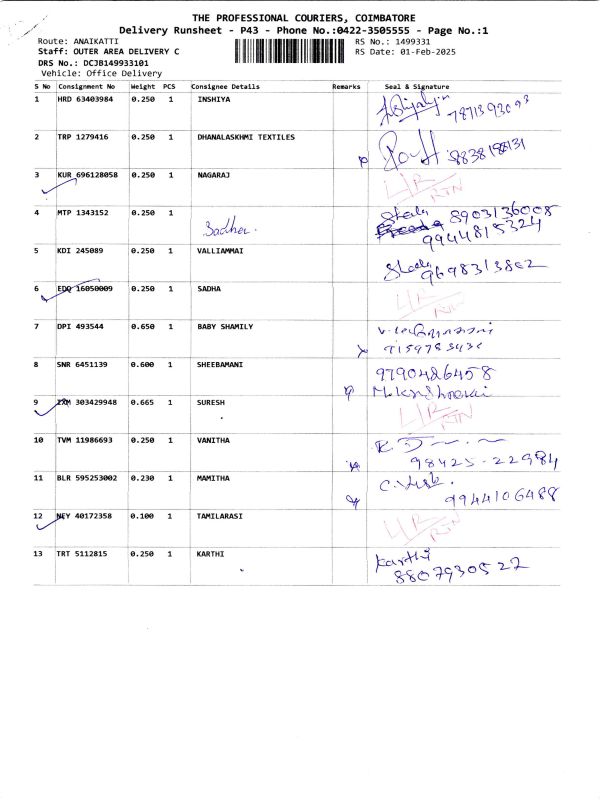 THE PROFESSIONAL COURIERS, COIMBATORE
Delivery Runsheet - P43 - Phone No.:0422-3505555 - Page No.:1
Route: ANAIKATTI RS No.: 1499331
Staff: OUTER AREA DELIVERY C RS Date: 01-Feb-2025
DRS No.: DCJB149933101
Vehicle: Office Delivery
S No Consignment No Weight PCS Consignee Details Remarks Seal & Signature
1 HRD 63403984 0.250 1 INSHIYA
2 TRP 1279416 0.250 1 DHANALASKHMI TEXTILES
3 KUR 696128058 0.250 1 NAGARAJ
RTN
4 MTP 1343152 0.250 1 8903136008
9944815324
5 KDI 245089 0.250 1 VALLIAMMAI
9698313802
6 EDQ 16050009 0.250 1 SADHA
RTN
7 DPI 493544 0.650 1 BABY SHAMILY
8 SNR 6451139 0.600 1 SHEEBAMANI 9790426458
9 303429948 0.665 1 SURESH
RTN
10 TVM 11986693 0.250 1 VANITHA
98425-22984
11 BLR 595253002 0.230 1 MAMITHA
9944106488
12 NEY 40172358 0.100 1 TAMILARASI
RTN
13 TRT 5112815 0.250 1 KARTHI Karthi
8807930527